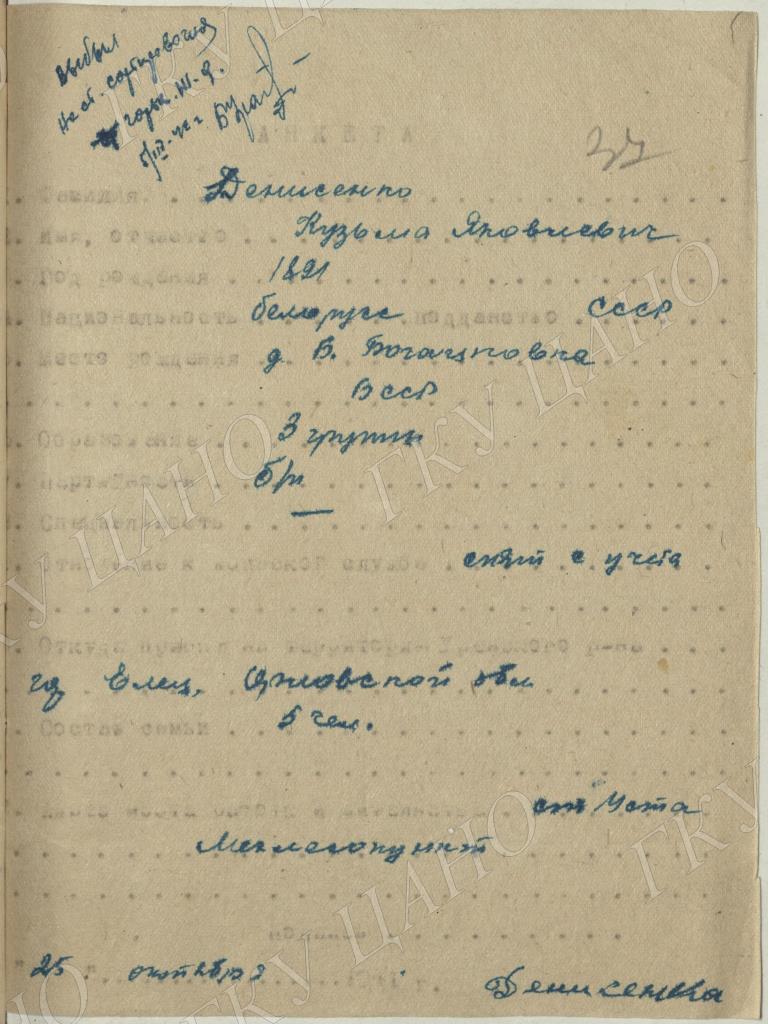 выбыл
на ст. сортировочная
горьк. ж. д.
5/III-42 г
37
АНКЕТА
1. Фамилия. Денисенко
2. Имя, отчество Кузьма Яковлевич
3. Год рождения 1891
4. Национальность белорусс подданство СССР
5. Место рождения д. В. Богацковка
БССР
6. Образование 3 группы
7. Партийность б/п
8. Специальность —
9. Отношение к воинской службе снят с учета
10. Откуда прибыл на территорию Уренского р-на
гор Елец, Орловской обл
Состав семьи 5 чел.
место работы и жительства ст Уста
Мехлесопункт
подпись
"25" октября 1941 г. Денисенка
ГКУ ЦАНО